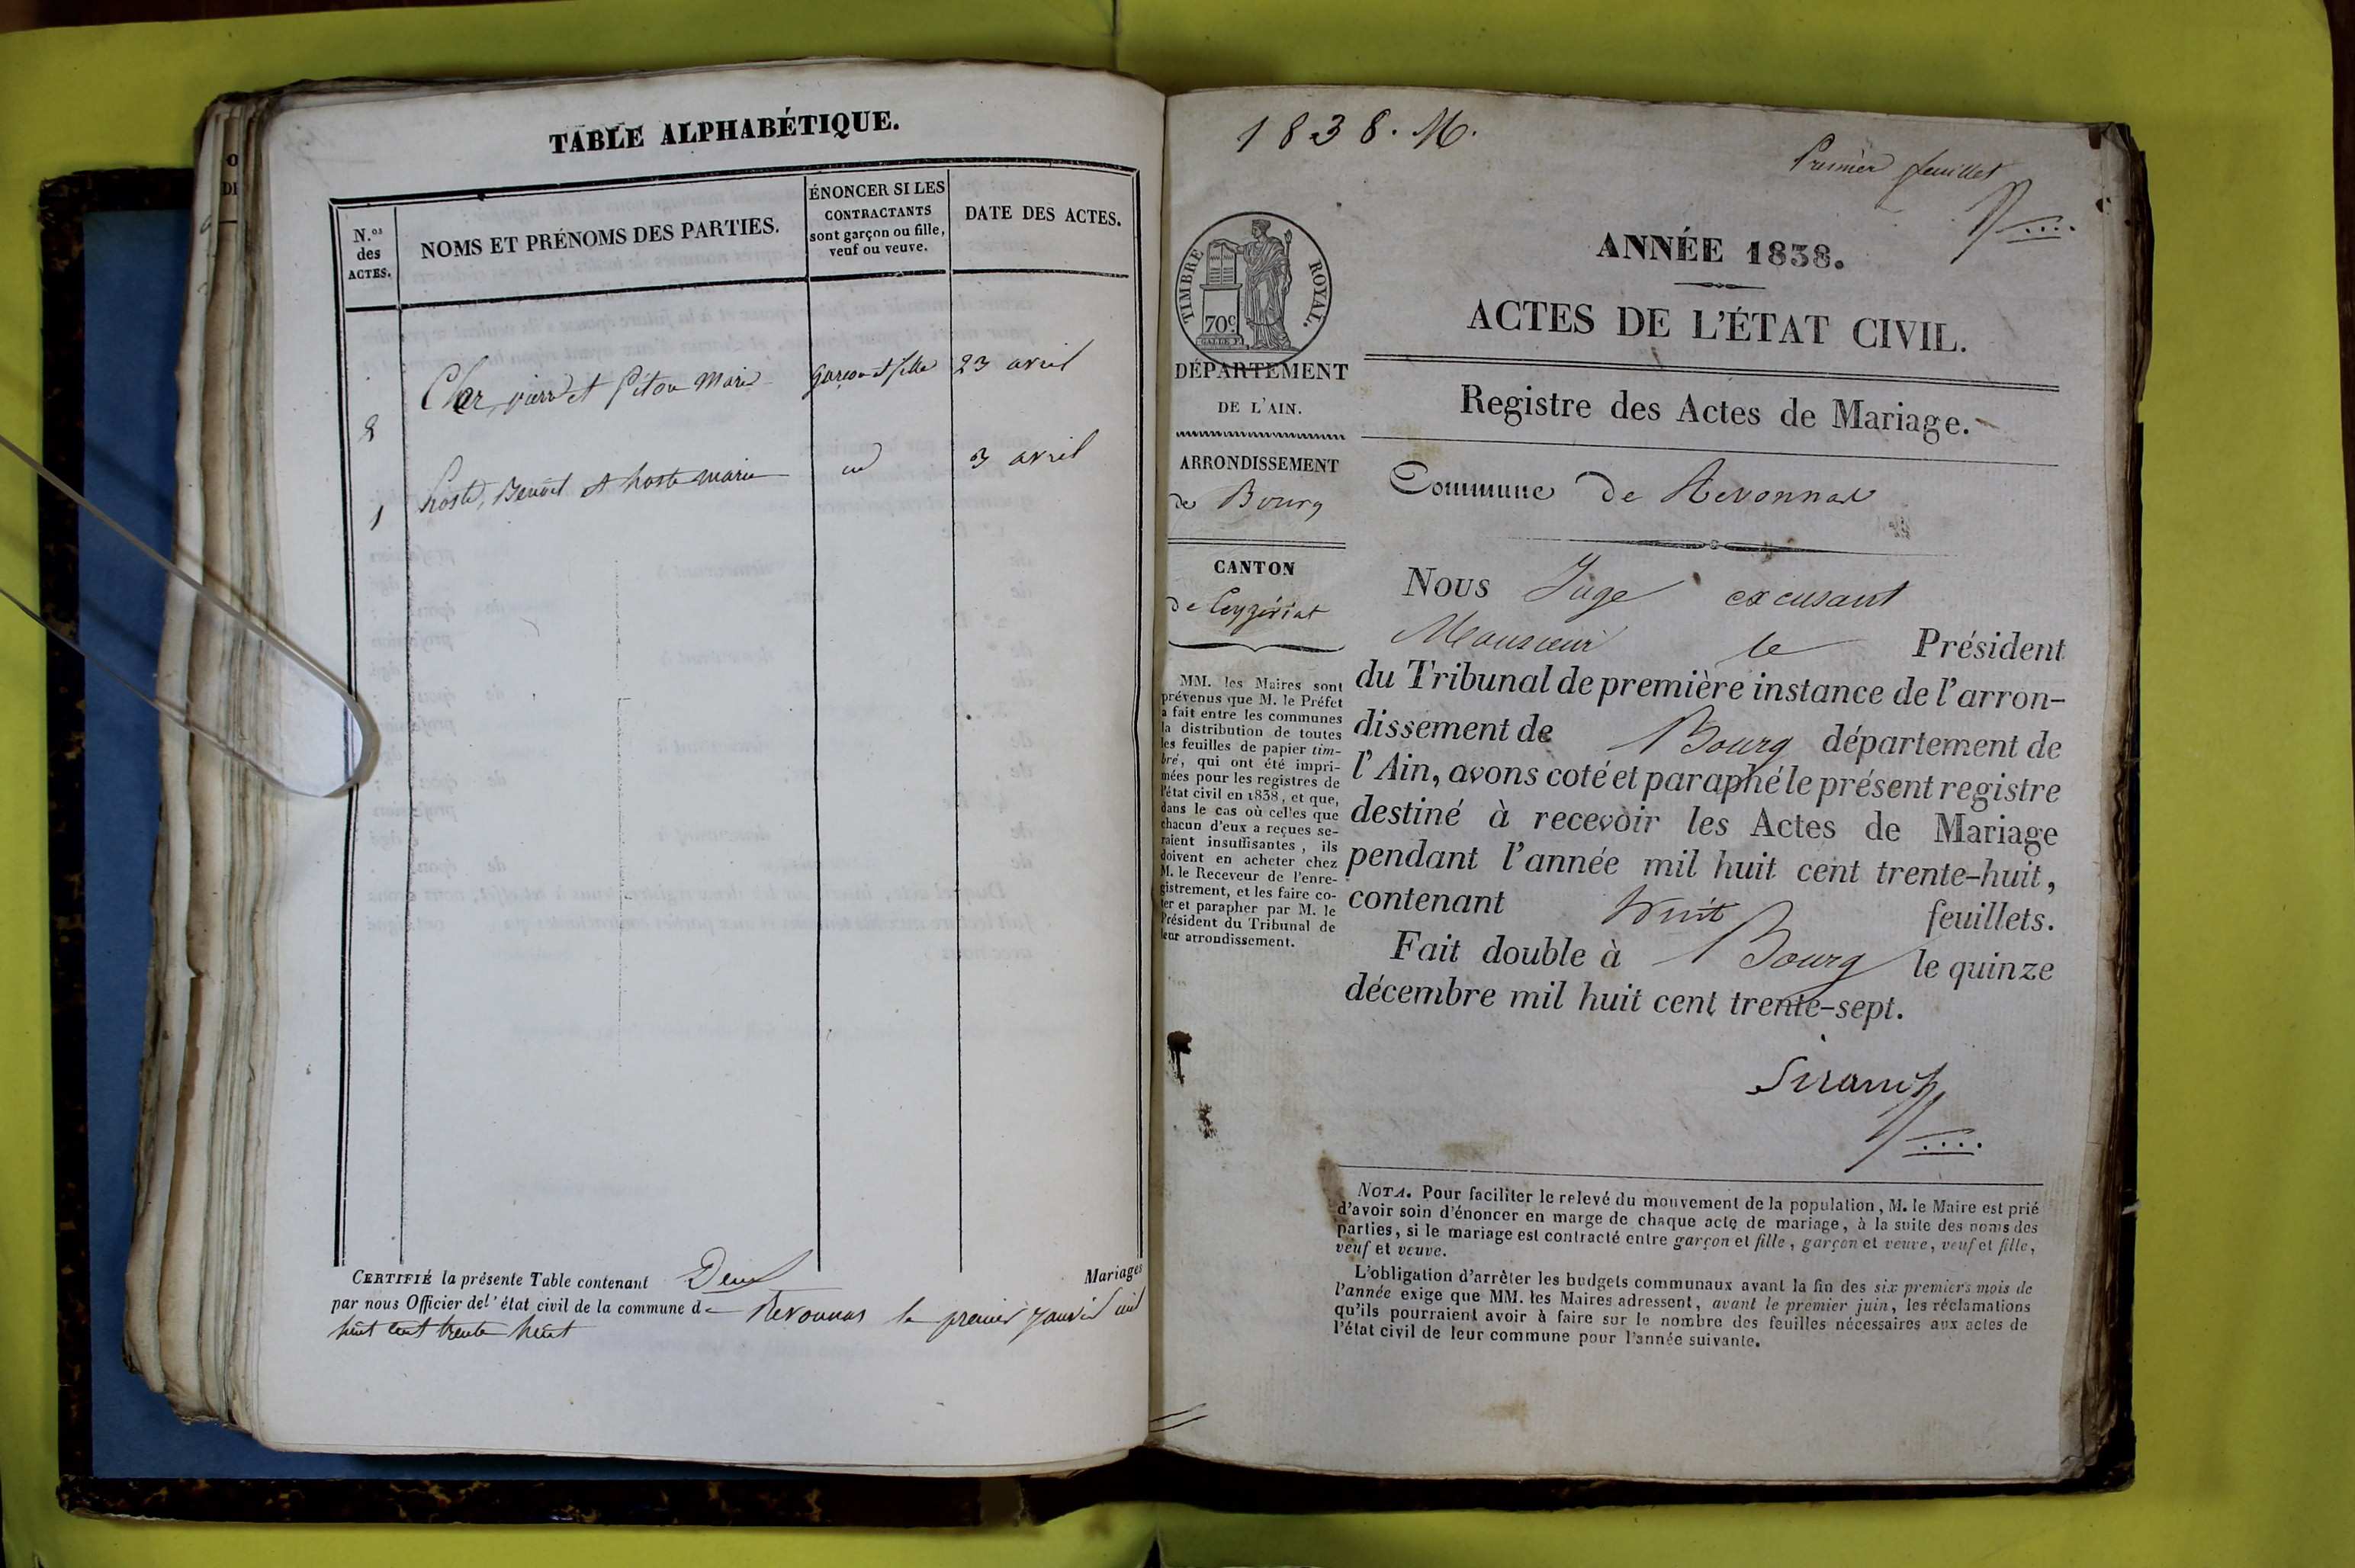 TABLE ALPHABÉTIQUE.
N.os des ACTES.
NOMS ET PRÉNOMS DES PARTIES.
ÉNONCER SI LES
CONTRACTANTS
sont garçon ou fille,
veuf ou veuve.
DATE DES ACTES.
2 Cler, pierre et Piton Marie garçon et fille 23 avril
1 hoste, Benoit et hoste marie id 3 avril
CERTIFIÉ la présente Table contenant Deux Mariages
par nous Officier de l'état civil de la commune de Revonnas le premier janvier mil
huit cent trente huit
1838. M.
Premier feuillet
TIMBRE ROYAL.
70c
DÉPARTEMENT
DE L'AIN.
ARRONDISSEMENT
de Bourg
CANTON
de Ceyzériat
MM. les Maires sont
prévenus que M. le Préfet
a fait entre les communes
la distribution de toutes
les feuilles de papier tim-
bré, qui ont été impri-
mées pour les registres de
l'état civil en 1838, et que,
dans le cas où celles que
chacun d'eux a reçues se-
raient insuffisantes, ils
doivent en acheter chez
M. le Receveur de l'enre-
gistrement, et les faire co-
ter et parapher par M. le
Président du Tribunal de
leur arrondissement.
ANNÉE 1838.
ACTES DE L'ÉTAT CIVIL.
Registre des Actes de Mariage.
Commune de Revonnas
Nous Juge excusant
Monsieur le Président
du Tribunal de première instance de l'arron-
dissement de Bourg département de
l'Ain, avons coté et paraphé le présent registre
destiné à recevoir les Actes de Mariage
pendant l'année mil huit cent trente-huit,
contenant huit feuillets.
Fait double à Bourg le quinze
décembre mil huit cent trente-sept.
NOTA. Pour faciliter le relevé du mouvement de la population, M. le Maire est prié
d'avoir soin d'énoncer en marge de chaque acte de mariage, à la suite des noms des
parties, si le mariage est contracté entre garçon et fille, garçon et veuve, veuf et fille,
veuf et veuve.
L'obligation d'arrêter les budgets communaux avant la fin des six premiers mois de
l'année exige que MM. les Maires adressent, avant le premier juin, les réclamations
qu'ils pourraient avoir à faire sur le nombre des feuilles nécessaires aux actes de
l'état civil de leur commune pour l'année suivante.